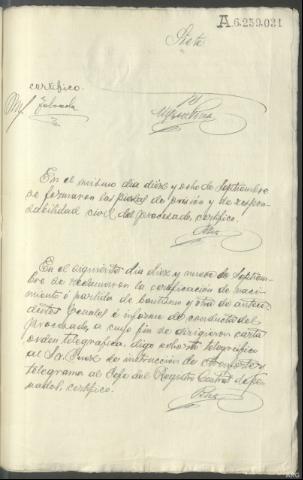 A.6.259.031
Siete
certifico.
En el mismo dia diez y ocho de Septiembre
se formaron las piezas de prisión y de respon-
sabilidad civil del procesado, certifico.
En el siguiente dia diez y nueve de Septiem-
bre se reclamaron la certificación de naci-
miento ó partida de bautismo y otra de antece-
dentes penales é informe de conducta del
procesado, a cuyo fin se dirigieron carta
orden telegrafica, digo exhorto telegráfico
al Sr. Juez de instrucción de y
telegrama al Jefe del Registro Central de Pe-
nados, certifico.